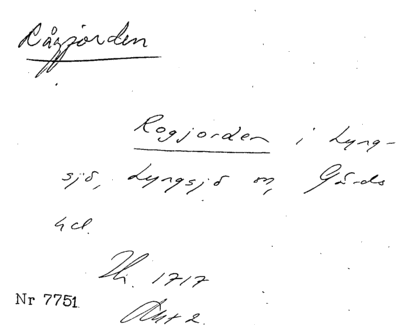 Rågjorden
Rogjorden i Lyng-
sjö, Lyngsjö sn, Gärds
hd.
Hk. 1717
Akt 2.
Nr 7751.